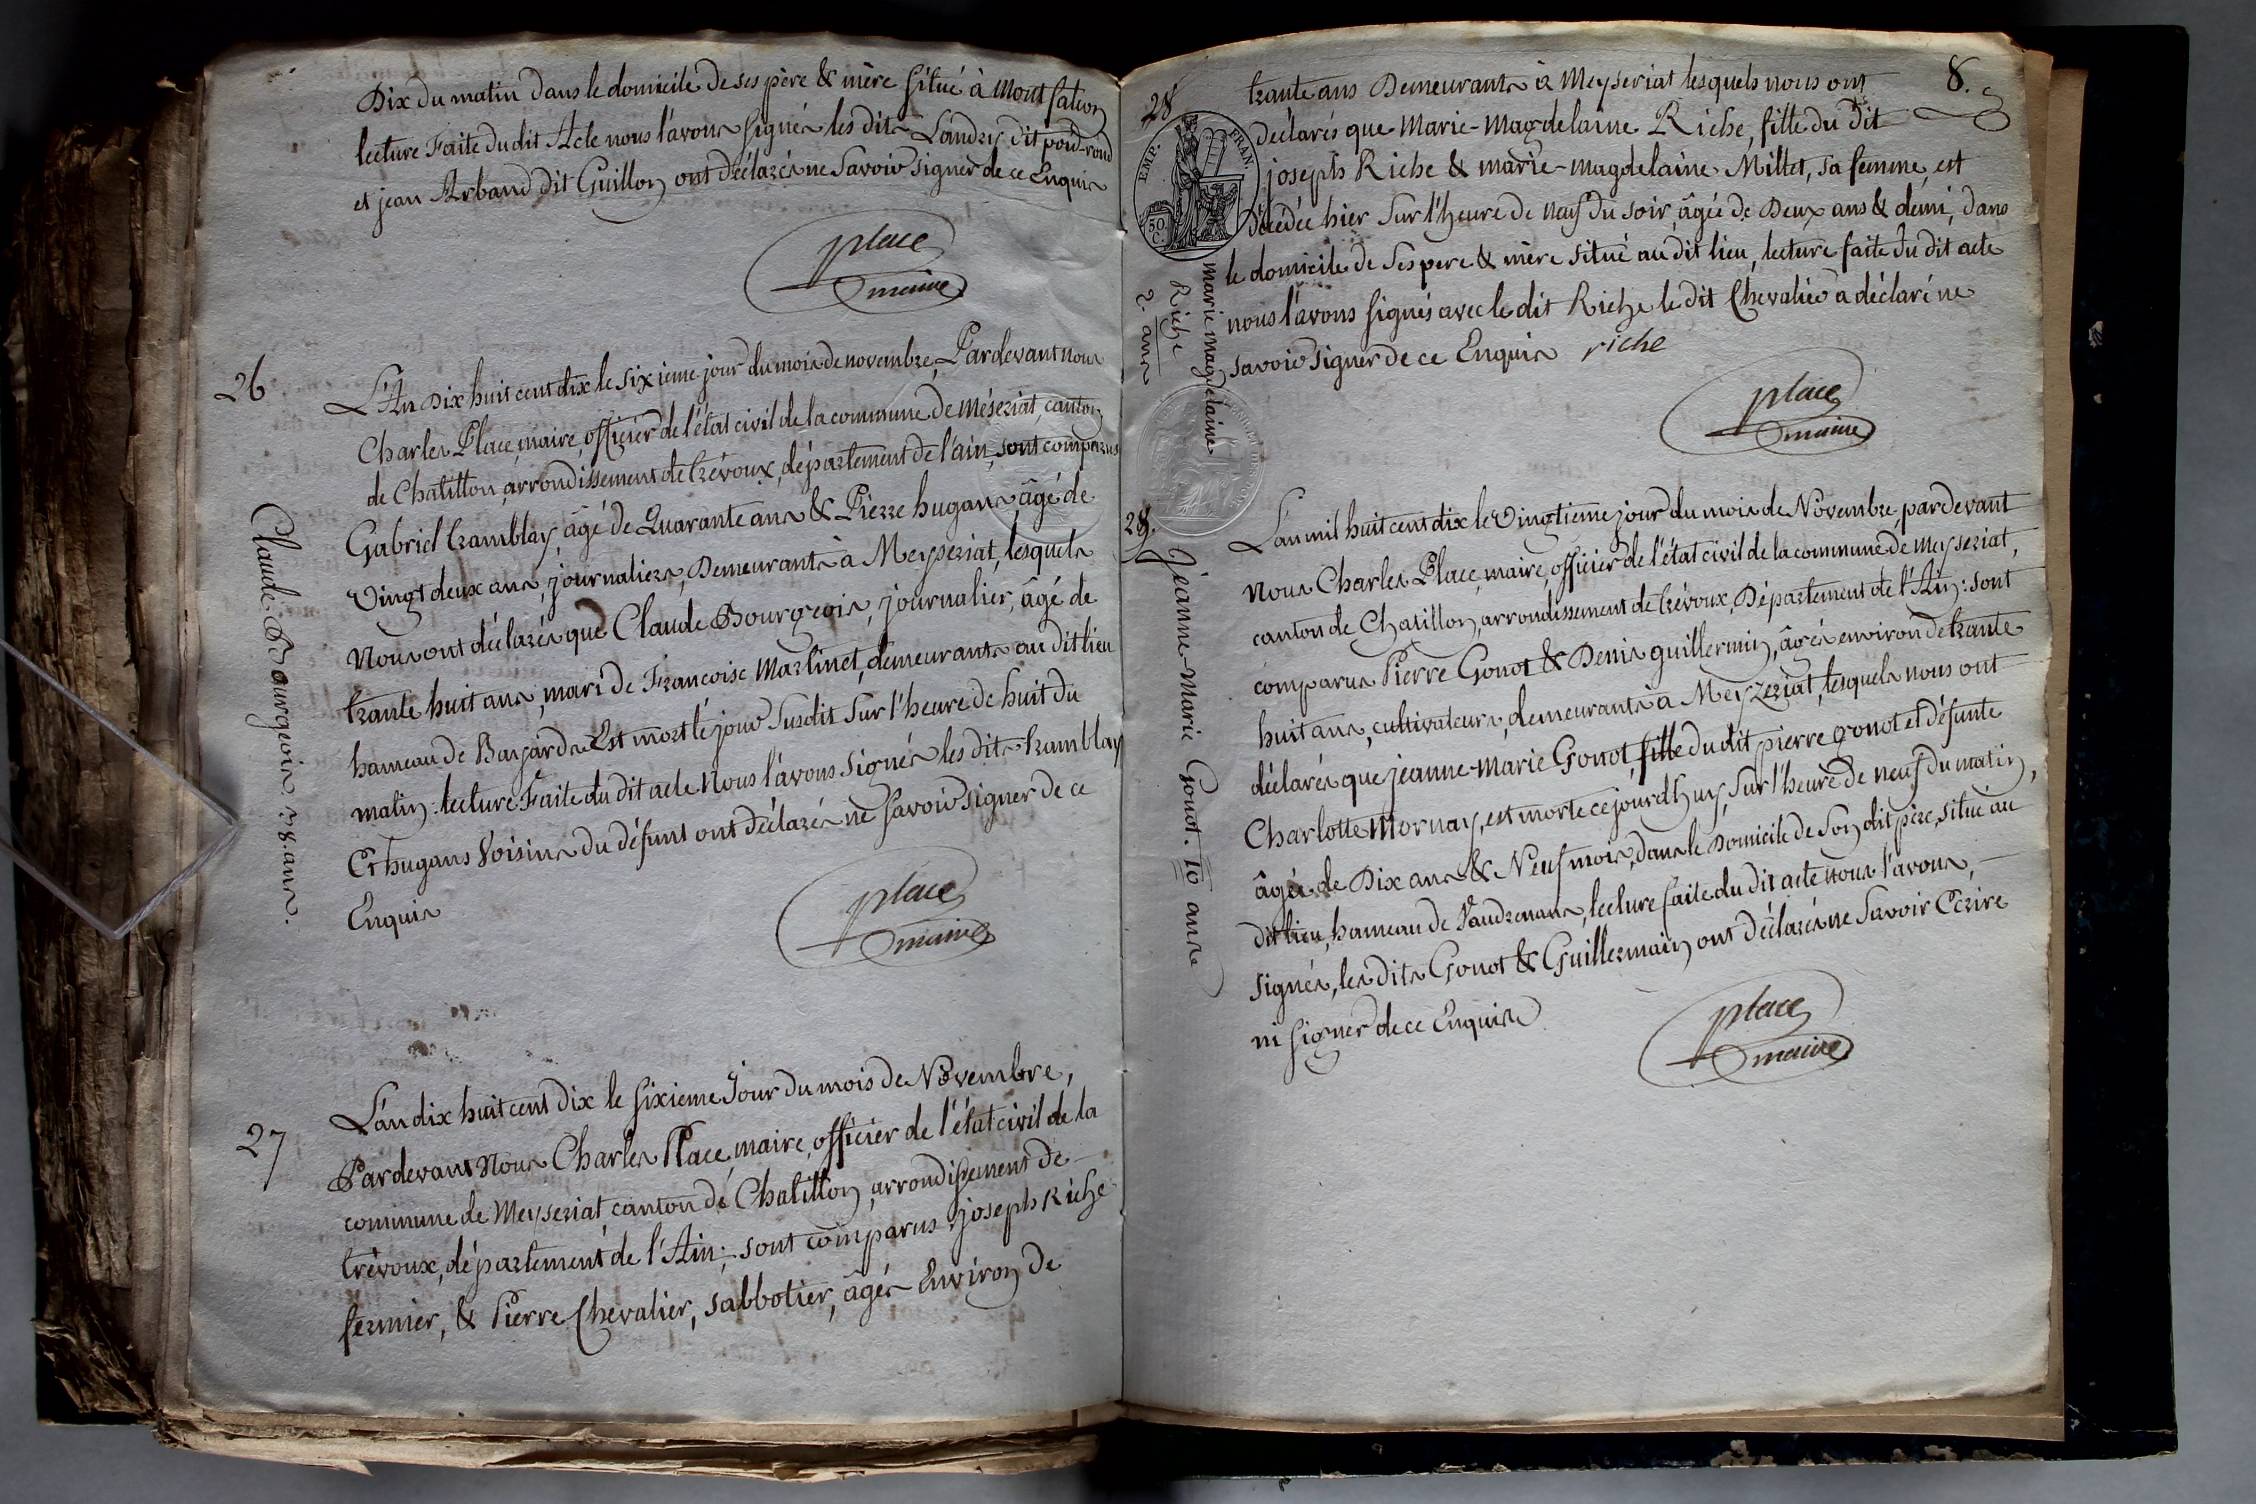 Dix du matin dans le domicile de ses père & mère situé à Montfalcon
lecture Faite du dit Acte nous l'avons signés les dits Landry dit poid-rond
et jean Arband dit Guillon ont déclarés ne Savoir signer de ce Enquis
place
maire
26
L'An Dix huit cent dix le sixieme jour du mois de novembre, Pardevant nous
Charles Place, maire, officier de l'état civil de la commune de Méseriat, canton
de Chatillon, arrondissement de trévoux, département de l'ain, sont comparus
Gabriel tramblay, âgé de Quarante ans & Pierre hugans, âgé de
Vingt deux ans, journaliers, Demeurants à Meyseriat, lesquels
Nous ont déclarés que Claude Bourgeois, journalier, âgé de
trante huit ans, mari de Francoise Martinet, demeurants au dit lieu
hameau de Bayards Est mort le jour Susdit Sur l'heure de huit du
matin : lecture Faite du dit acte Nous l'avons Signés les dits tramblay
Et hugans Voisins du défunt ont déclarés ne Savoir Signer de ce
Enquis
place
maire
Claude Bourgeois 38. ans.
27
L'an dix huit cent dix le sixieme Jour du mois de Novembre,
Pardevant Nous Charles Place, maire, officier de l'état civil de la
commune de Meyseriat canton de Chatillon, arrondissement de
trévoux, département de l'Ain; sont comparus joseph Riche
fermier, & Pierre Chevalier, sabbotier, âgés Environ de
8.
28
EMP. FRAN.
50 C.
trante ans Demeurants à Meyseriat lesquels nous ont
Déclarés que Marie-Magdelaine Riche, fille du dit
joseph Riche & marie-magdelaine Millet, sa femme, est
Décédée hier Sur l'heure de neuf du soir, âgée de Deux ans & demi, dans
le domicile de Ses pere & mère situé au dit lieu, lecture faite du dit acte
nous l'avons signés avec le dit Riche le dit Chevalier a déclaré ne
savoir signer de ce Enquis riche
place
maire
marie magdelaine
Riche
2. ans
28.
L'an mil huit cent dix le Vingtieme jour du mois de Novembre, pardevant
Nous Charles Place, maire, officier de l'état civil de la commune de Meyseriat,
canton de Chatillon, arrondissement de trévoux, Département de l'Ain : sont
comparus Pierre Gonot & Denis guillermin, âgés environ de trante
huit ans, cultivateurs, demeurants à Meyzeriat, lesquels nous ont
déclarés que jeanne-Marie Gonot, fille du dit pierre gonot et défunte
Charlotte Mornay, est morte cejourd'huy, Sur l'heure de neuf du matin,
âgée de Dix ans & Neuf mois, dans le Domicile de Son dit père, situé au
dit lieu, hameau de Vaudrenans, lecture faite du dit acte nous l'avons,
Signés, les dits Gonot & Guillermain ont déclarés ne Savoir Ecrire
ni Signer de ce Enquis
place
maire
jeanne-Marie Gonot. 10 ans